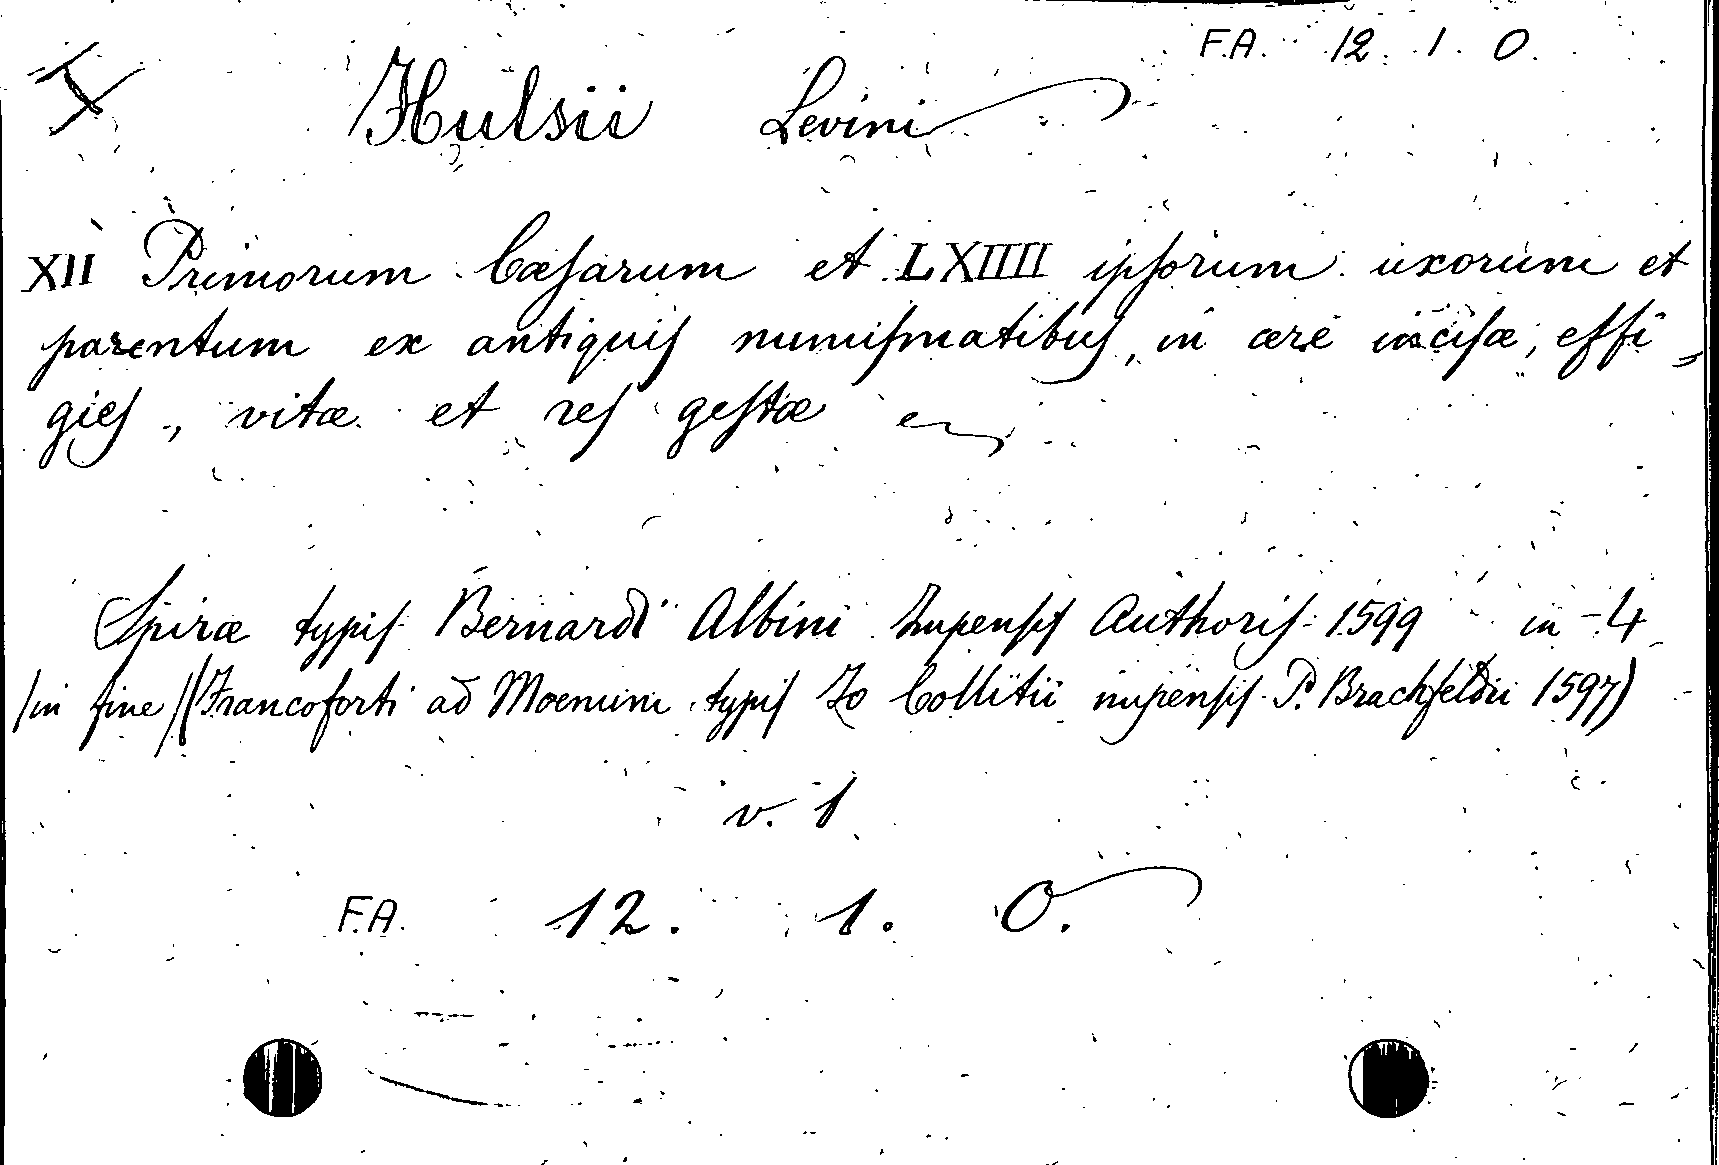 F.A. 12. 1. O.
Hulsii Levini
XII Primorum Cæsarum et LXIIII ipsorum uxorum et
parentum ex antiquis numismatibus, in ære incisæ, effi-
gies, vitæ et res gestæ
Spiræ typis Bernardi Albini Impensis Authoris 1599 in-4
/in fine/ (Francoforti ad Moenum typis Io Collitii impensis P. Brachfeldii 1597)
v. 1
F.A. 12. 1. O.